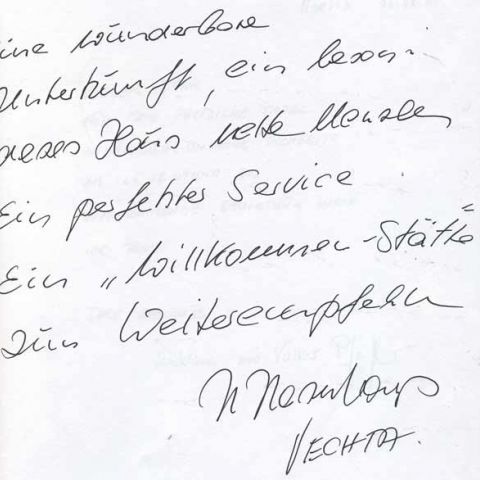 eine wunderbare
Unterkunft, ein beson-
deres Haus nette Menschen
Ein perfekter Service
Ein „Willkommen-Stätte"
zum Weiterempfehlen
VECHTA.